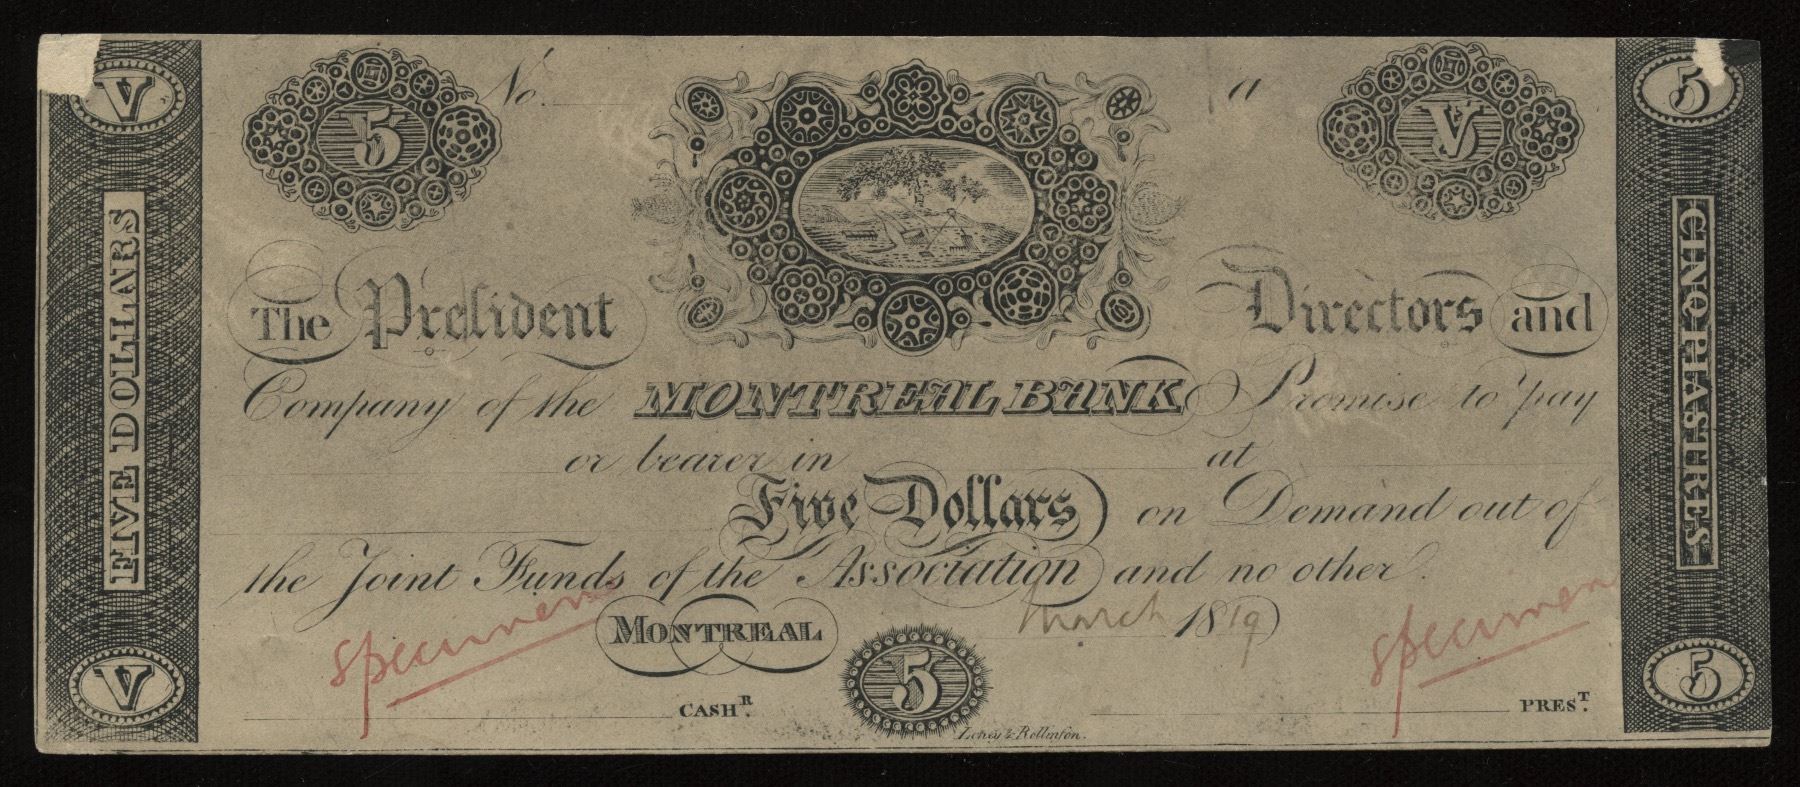 V 5 No. a V 5
FIVE DOLLARS
The President Directors and
Company of the MONTREAL BANK Promise to pay
or bearer in at
Five Dollars on Demand out of
the Joint Funds of the Association and no other.
specimen March 1819 specimen
MONTREAL
V 5 5
CASHR. PREST.
& Rollinson.
CINQ PIASTRES